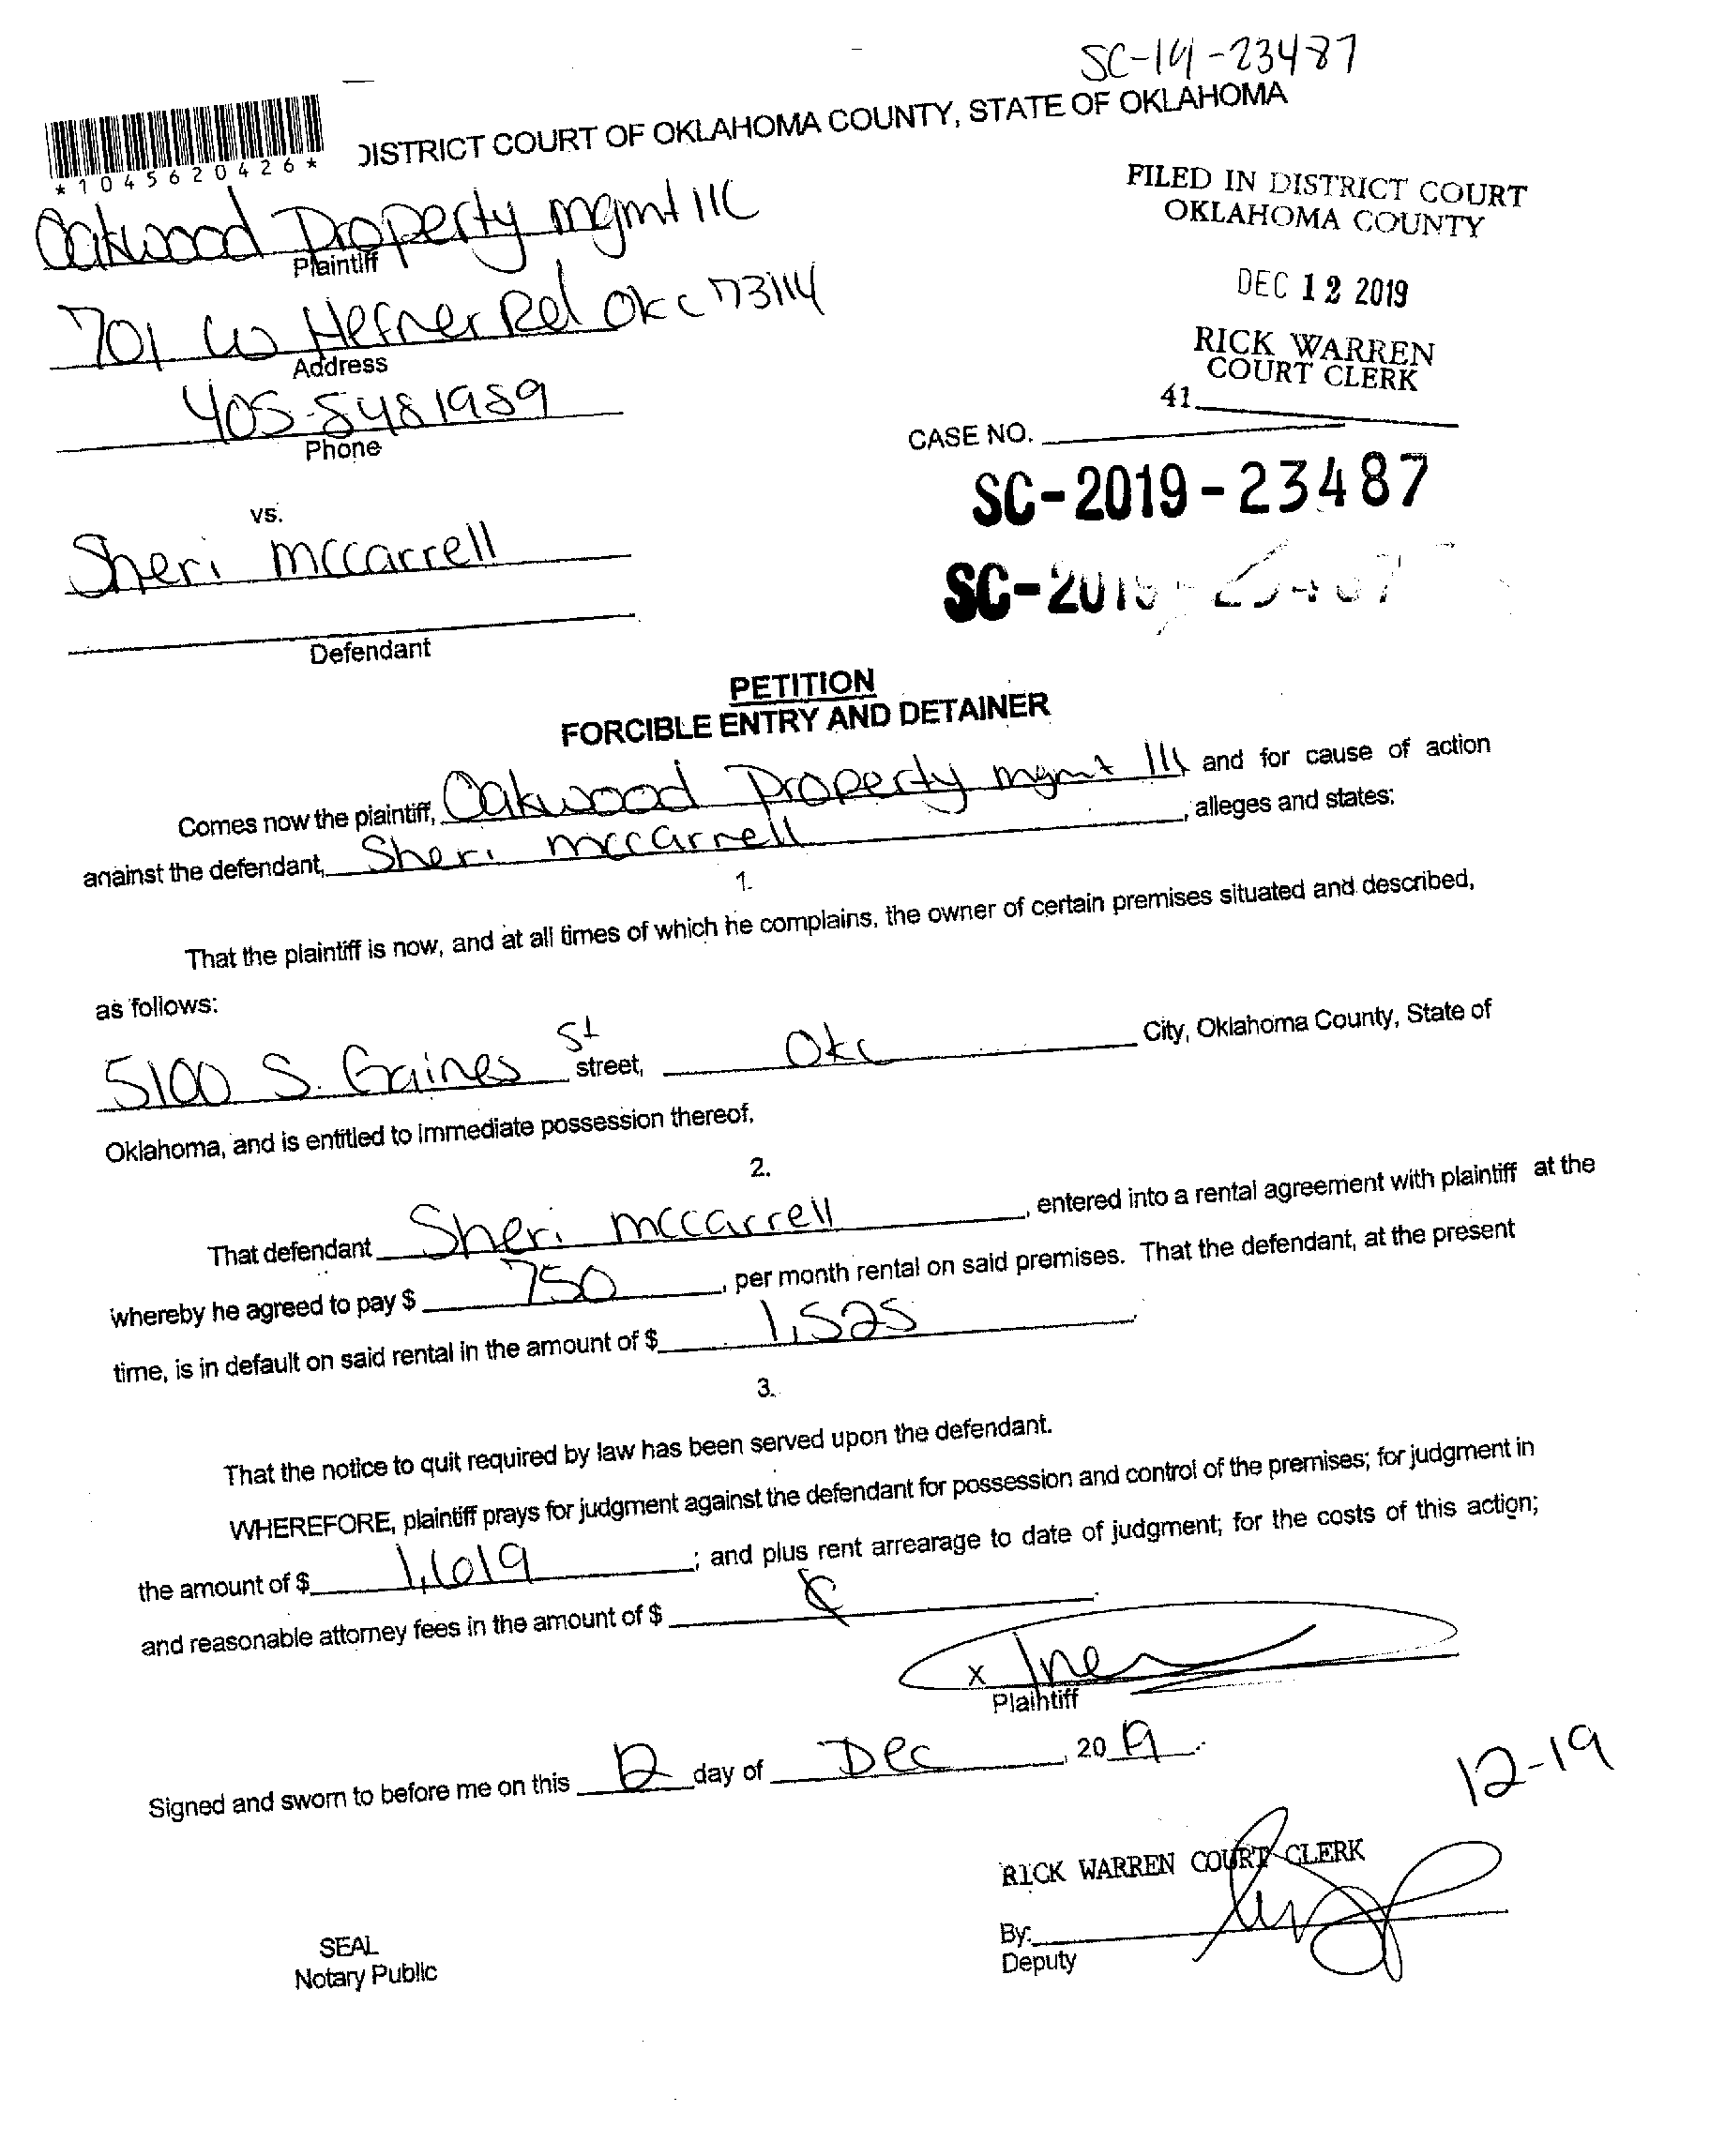 SC-19-23487
DISTRICT COURT OF OKLAHOMA COUNTY, STATE OF OKLAHOMA
*1045620426*
Oakwood Property mgmt llc
Plaintiff
701 W Hefner Rd Okc 73114
Address
405-8481989
Phone
FILED IN DISTRICT COURT
OKLAHOMA COUNTY
DEC 12 2019
RICK WARREN
COURT CLERK
41
CASE NO.
SC-2019-23487
vs.
Sheri mccarrell
Defendant
PETITION
FORCIBLE ENTRY AND DETAINER
Comes now the plaintiff, Oakwood Property mgmt llc and for cause of action
against the defendant, Sheri mccarrell, alleges and states:
1.
That the plaintiff is now, and at all times of which he complains, the owner of certain premises situated and described,
as follows:
5100 S. Gaines St street, Okc City, Oklahoma County, State of
Oklahoma, and is entitled to immediate possession thereof.
2.
That defendant Sheri mccarrell, entered into a rental agreement with plaintiff at the
whereby he agreed to pay $ 750, per month rental on said premises. That the defendant, at the present
time, is in default on said rental in the amount of $ 1,525.
3.
That the notice to quit required by law has been served upon the defendant.
WHEREFORE, plaintiff prays for judgment against the defendant for possession and control of the premises; for judgment in
the amount of $ 1,619; and plus rent arrearage to date of judgment; for the costs of this action;
and reasonable attorney fees in the amount of $
x
Plaintiff
Signed and sworn to before me on this 12 day of Dec, 2019.
12-19
RICK WARREN COURT CLERK
By:
Deputy
SEAL
Notary Public